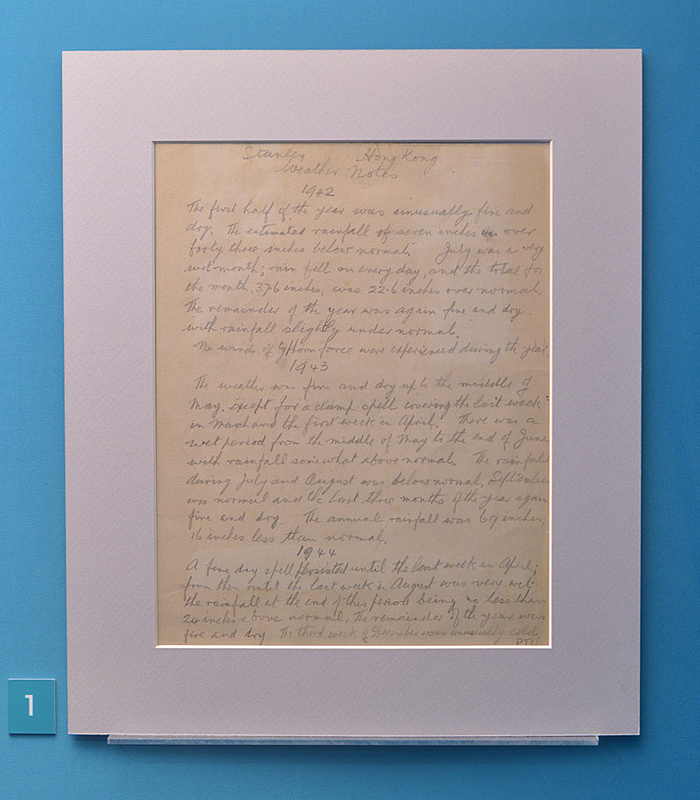 Stanley Hong Kong
Weather Notes
1942
The first half of the year was unusually fine and
dry. The estimated rainfall of seven inches was over
forty three inches below normal. July was a very
wet month; rain fell on every day, and the total for
the month, 37.6 inches, was 22.6 inches over normal.
The remainder of the year was again fine and dry
with rainfall slightly under normal.
No winds of typhoon force were experienced during the year.
1943
The weather was fine and dry up to the middle of
May, except for a damp spell covering the last week
in March and the first week in April. There was a
wet period from the middle of May to the end of June
with rainfall somewhat above normal. The rainfall
during July and August was below normal, September
was normal and the last three months of the year again
fine and dry. The annual rainfall was 69 inches,
16 inches less than normal.
1944
A fine day spell persisted until the last week in April;
from then until the last week in August was very wet
the rainfall at the end of this period being no less than
24 inches above normal. The remainder of the year was
fine and dry. The third week of December was unusually cold.
PTO
1